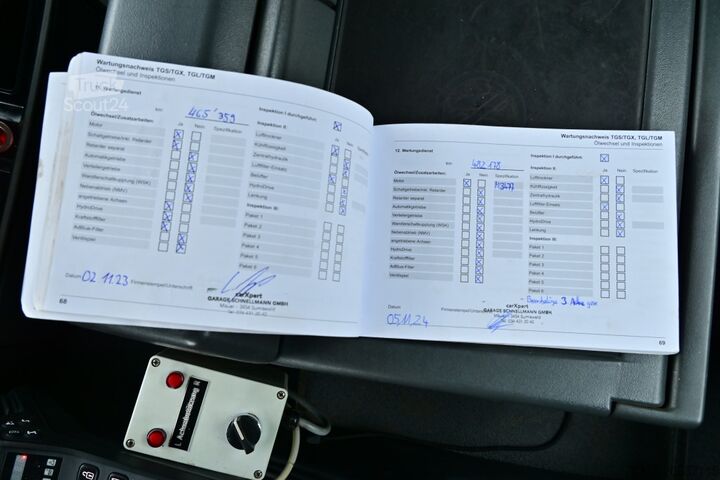 Truck
Scout24
Wartungsnachweis TGS/TGX, TGL/TGM
Ölwechsel und Inspektionen
11. Wartungsdienst
km 465'359
Ölwechsel/Zusatzarbeiten: Ja Nein Spezifikation
Motor
Schaltgetriebe/inkl. Retarder
Retarder separat
Automatikgetriebe
Verteilergetriebe
Wandlerschaltkupplung (WSK)
Nebenabtrieb (NMV)
angetriebene Achsen
HydroDrive
Kraftstofffilter
AdBlue-Filter
Ventilspiel
Inspektion I durchgeführt:
Inspektion II: Ja Nein
Lufttrockner
Kühlflüssigkeit
Zentralhydraulik
Luftfilter-Einsatz
Belüfter
HydroDrive
Lenkung
Inspektion III:
Paket 1
Paket 2
Paket 3
Paket 4
Paket 5
Paket 6
Datum 02.11.23 Firmenstempel/Unterschrift
carXpert
GARAGE SCHNELLMANN GMBH
3454 Sumiswald
68
Wartungsnachweis TGS/TGX, TGL/TGM
Ölwechsel und Inspektionen
12. Wartungsdienst
km 482'178
Ölwechsel/Zusatzarbeiten: Ja Nein Spezifikation
Motor M3477
Schaltgetriebe/inkl. Retarder
Retarder separat
Automatikgetriebe
Verteilergetriebe
Wandlerschaltkupplung (WSK)
Nebenabtrieb (NMV)
angetriebene Achsen
HydroDrive
Kraftstofffilter
AdBlue-Filter
Ventilspiel
Inspektion I durchgeführt:
Inspektion II: Ja Nein Spezifikation
Lufttrockner
Kühlflüssigkeit
Zentralhydraulik
Luftfilter-Einsatz
Belüfter
HydroDrive
Lenkung
Inspektion III:
Paket 1
Paket 2
Paket 3
Paket 4
Paket 5
Paket 6
3 Achse
Datum
05.11.24 Firmenstempel/Unterschrift
carXpert
GARAGE SCHNELLMANN GMBH
3454 Sumiswald
69